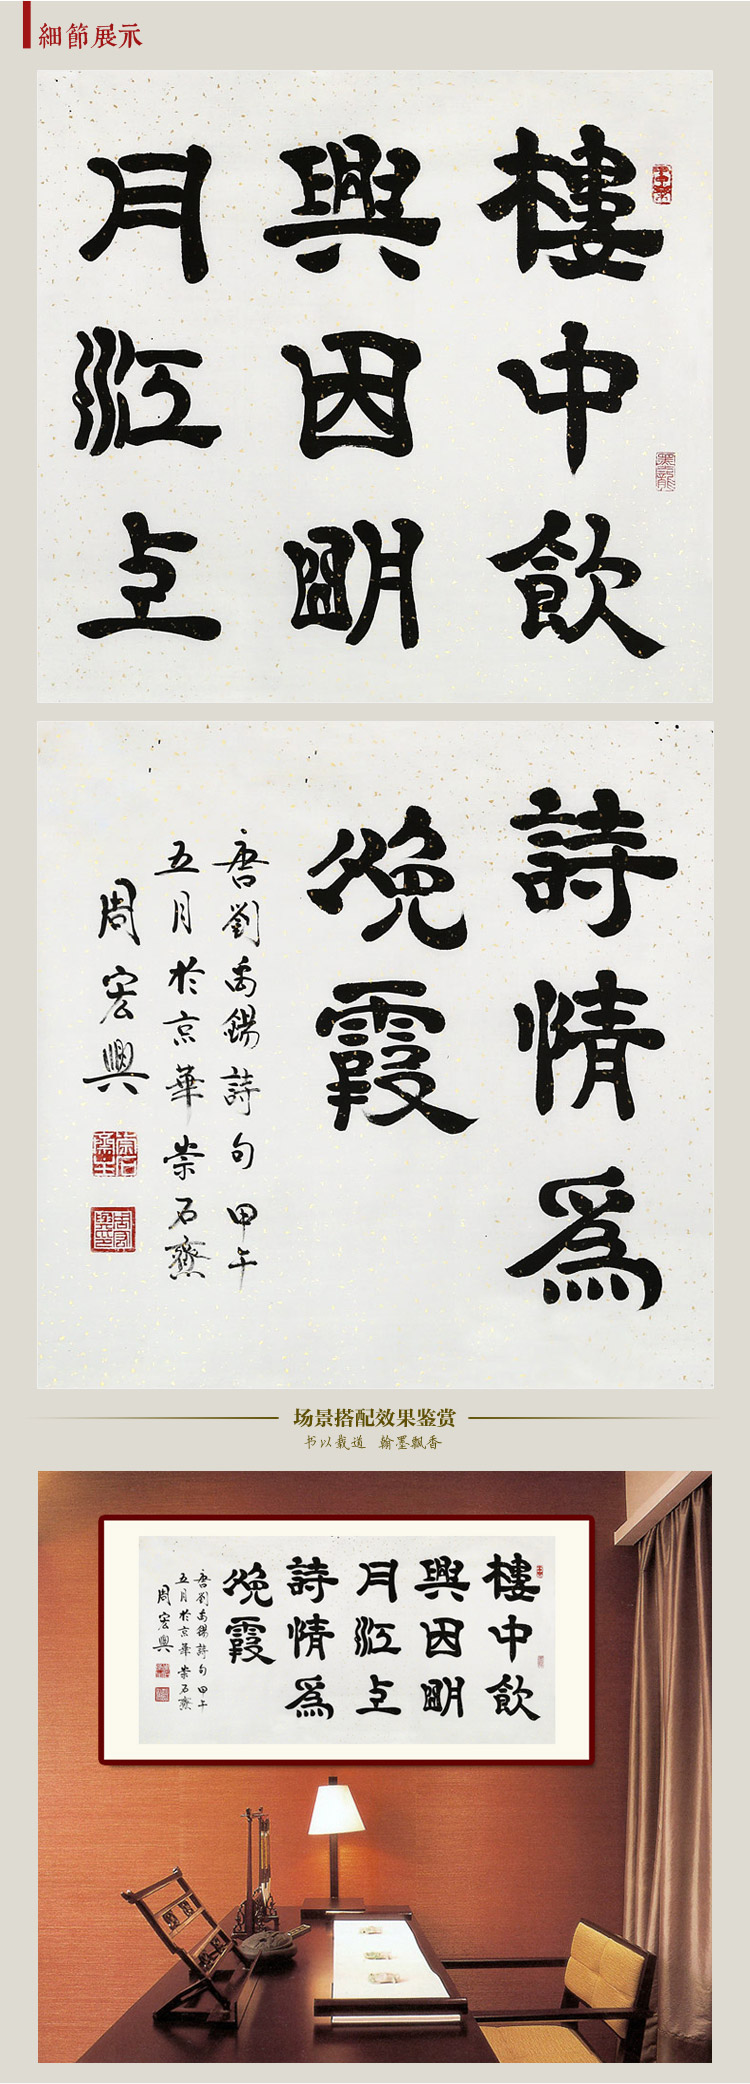 細節展示
樓中飲
興因明
月江上
詩情為
晚霞
唐劉禹錫詩句甲午
五月於京華崇石齋
周宏興
场景搭配效果鉴赏
书以载道 翰墨飘香
樓中飲
興因明
月江上
詩情為
晚霞
唐劉禹錫詩句甲午
五月於京華崇石齋
周宏興